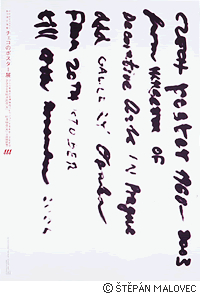 CZECH poster 1960–2003
from MUSEUM OF
Decorative Arts IN Prague
ddd GALLERY Osaka
From 20TH OCTOBER
till November
チェコのポスター展
© ŠTĚPÁN MALOVEC